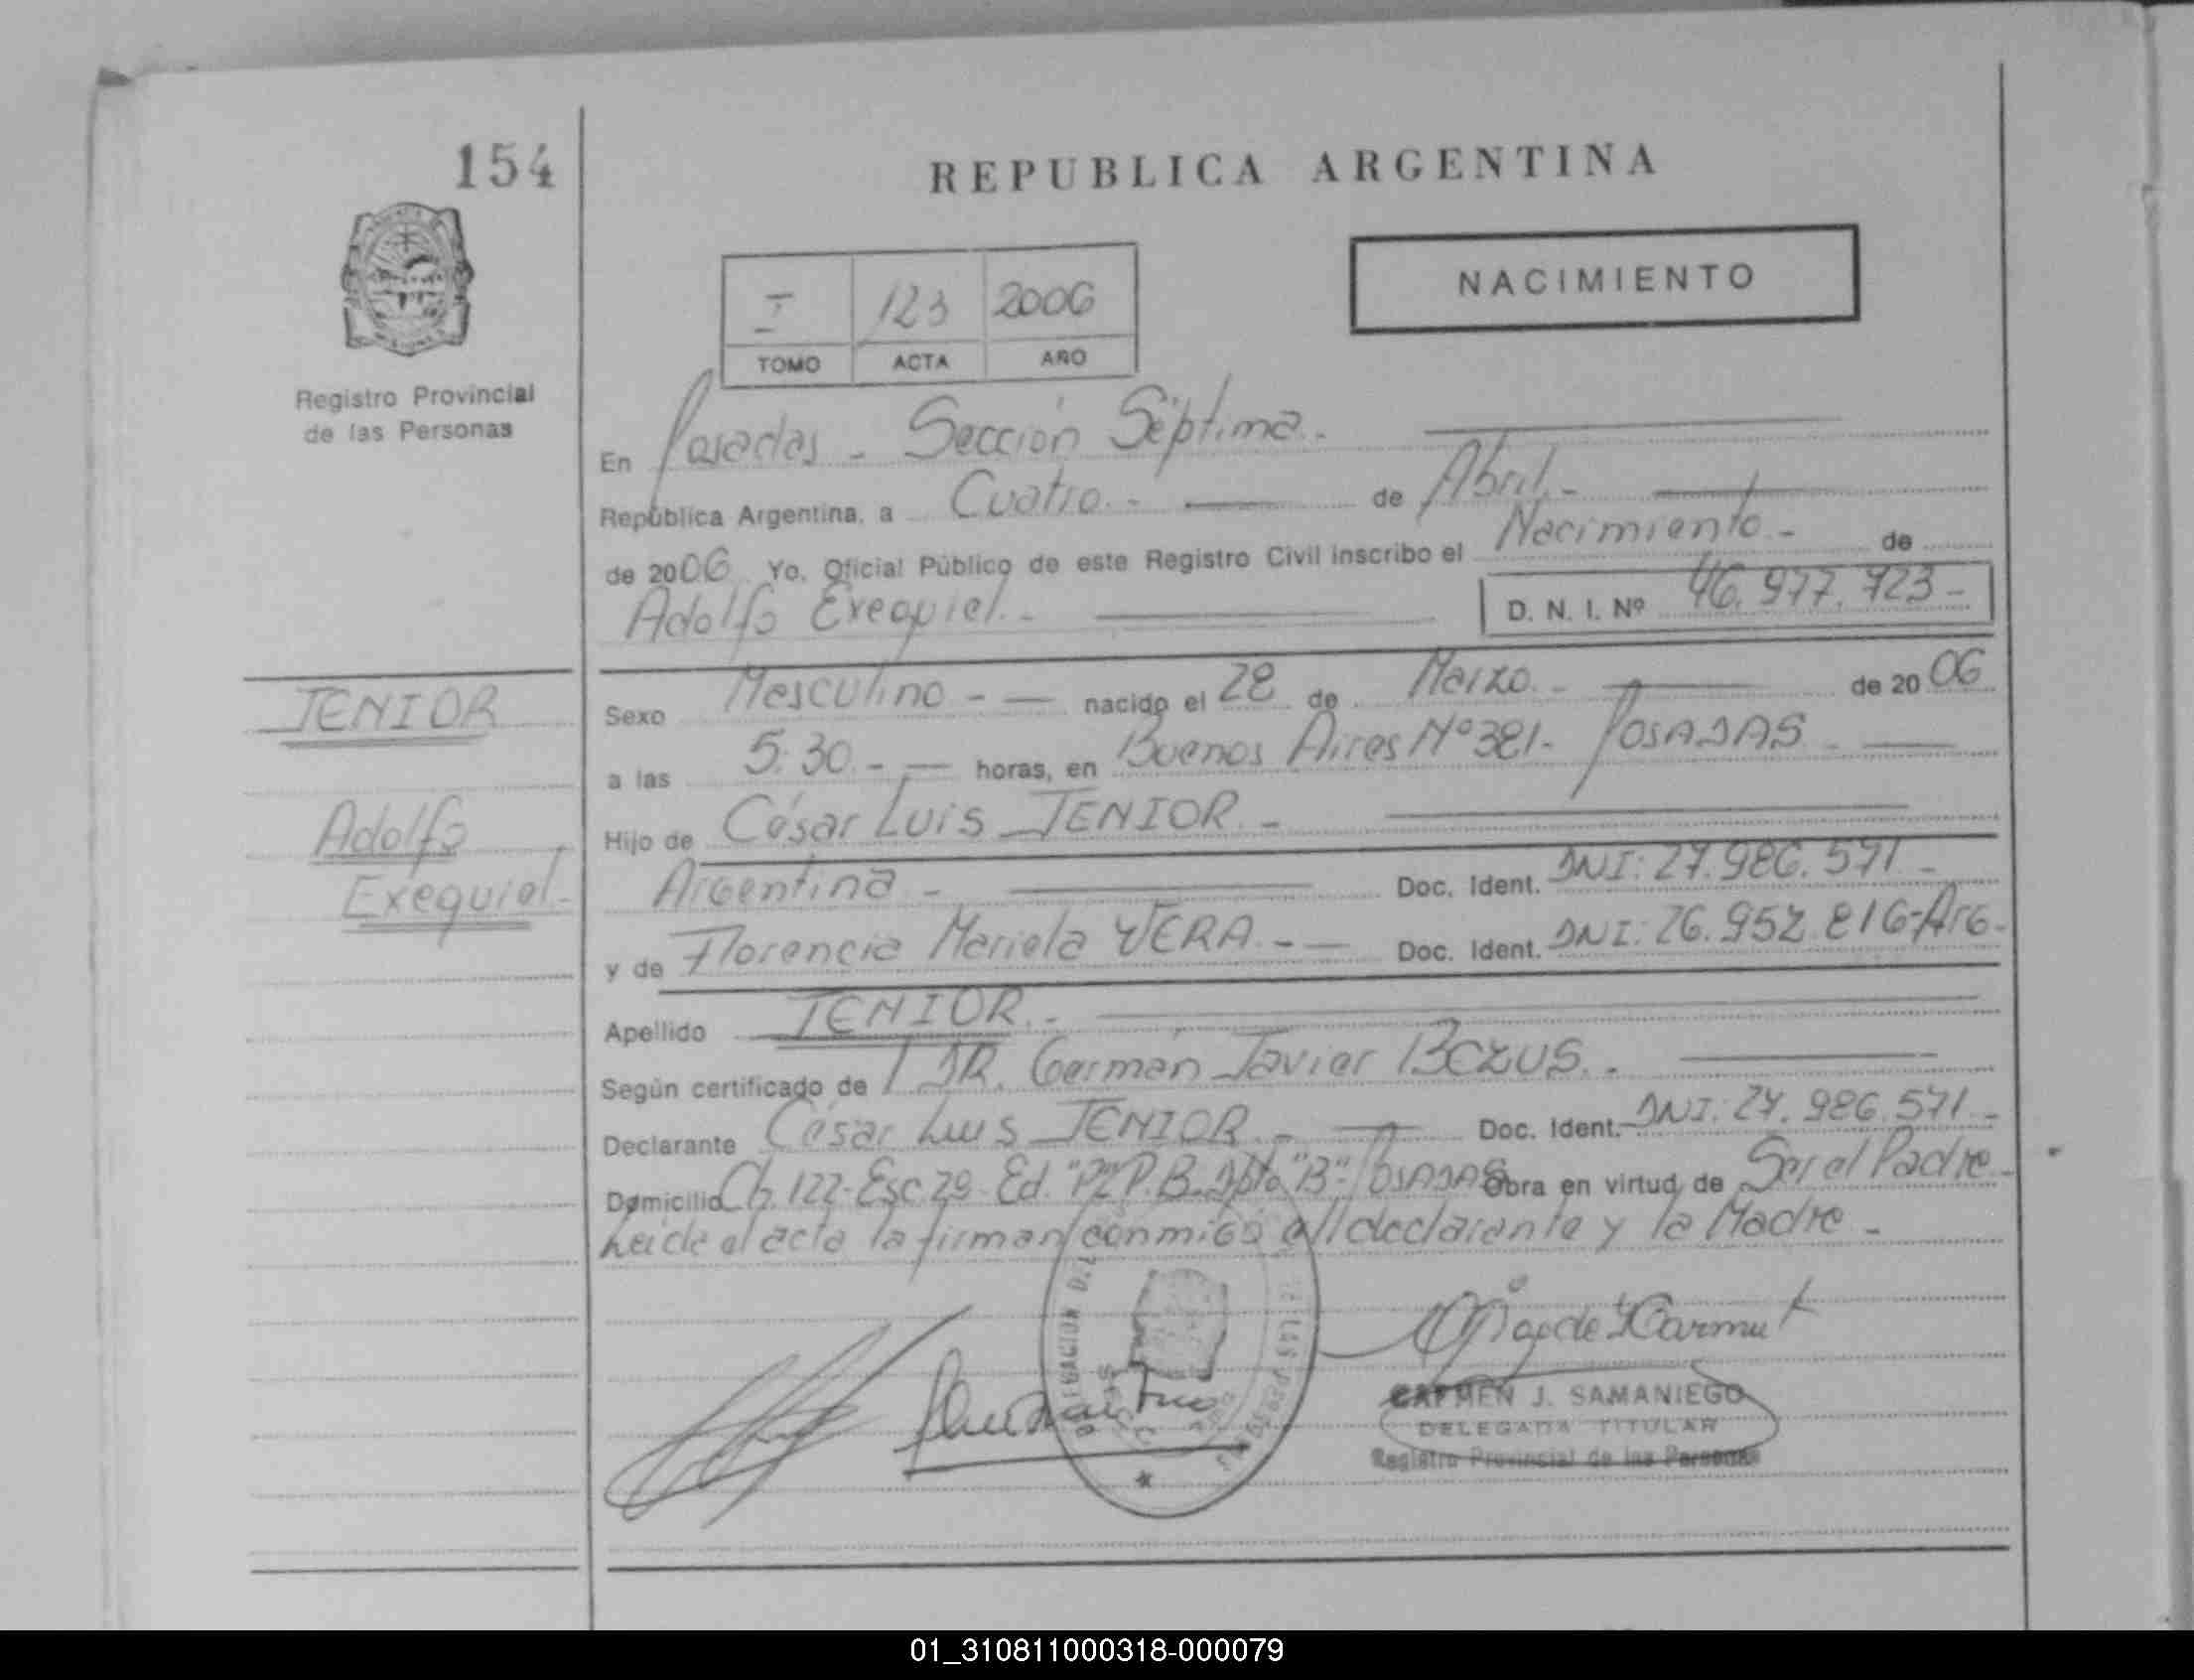 154
REPUBLICA ARGENTINA
NACIMIENTO
I 123 2006
TOMO ACTA AÑO
Registro Provincial
de las Personas
En Posadas - Sección Séptima.-
República Argentina, a Cuatro.- de Abril.-
de 2006 Yo, Oficial Público de este Registro Civil inscribo el Nacimiento.- de
Adolfo Exequiel.- D. N. I. Nº 46.977.723-
JENIOR
Sexo Masculino - nacido el 28 de Marzo.- de 2006
a las 5:30.- horas, en Buenos Aires Nº 381- POSADAS -
Adolfo
Exequiel-
Hijo de César Luis JENIOR.-
Argentina - Doc. Ident. DNI: 27.986.571-
y de Florencia Mariela VERA.- Doc. Ident. DNI: 26.952.816-Arg-
Apellido JENIOR.-
Según certificado de DR. Germán Javier BCZUS.-
Declarante César Luis JENIOR.- Doc. Ident. DNI: 27.986.571-
Domicilio Ch. 122-Esc. 29- Ed. "P2" P.B. Dpto "B"- POSADAS Obra en virtud de Ser el Padre-
Leida el acta la firman conmigo el declarante y la Madre-
CARMEN J. SAMANIEGO
DELEGADA TITULAR
Registro Provincial de las Personas
01_310811000318-000079